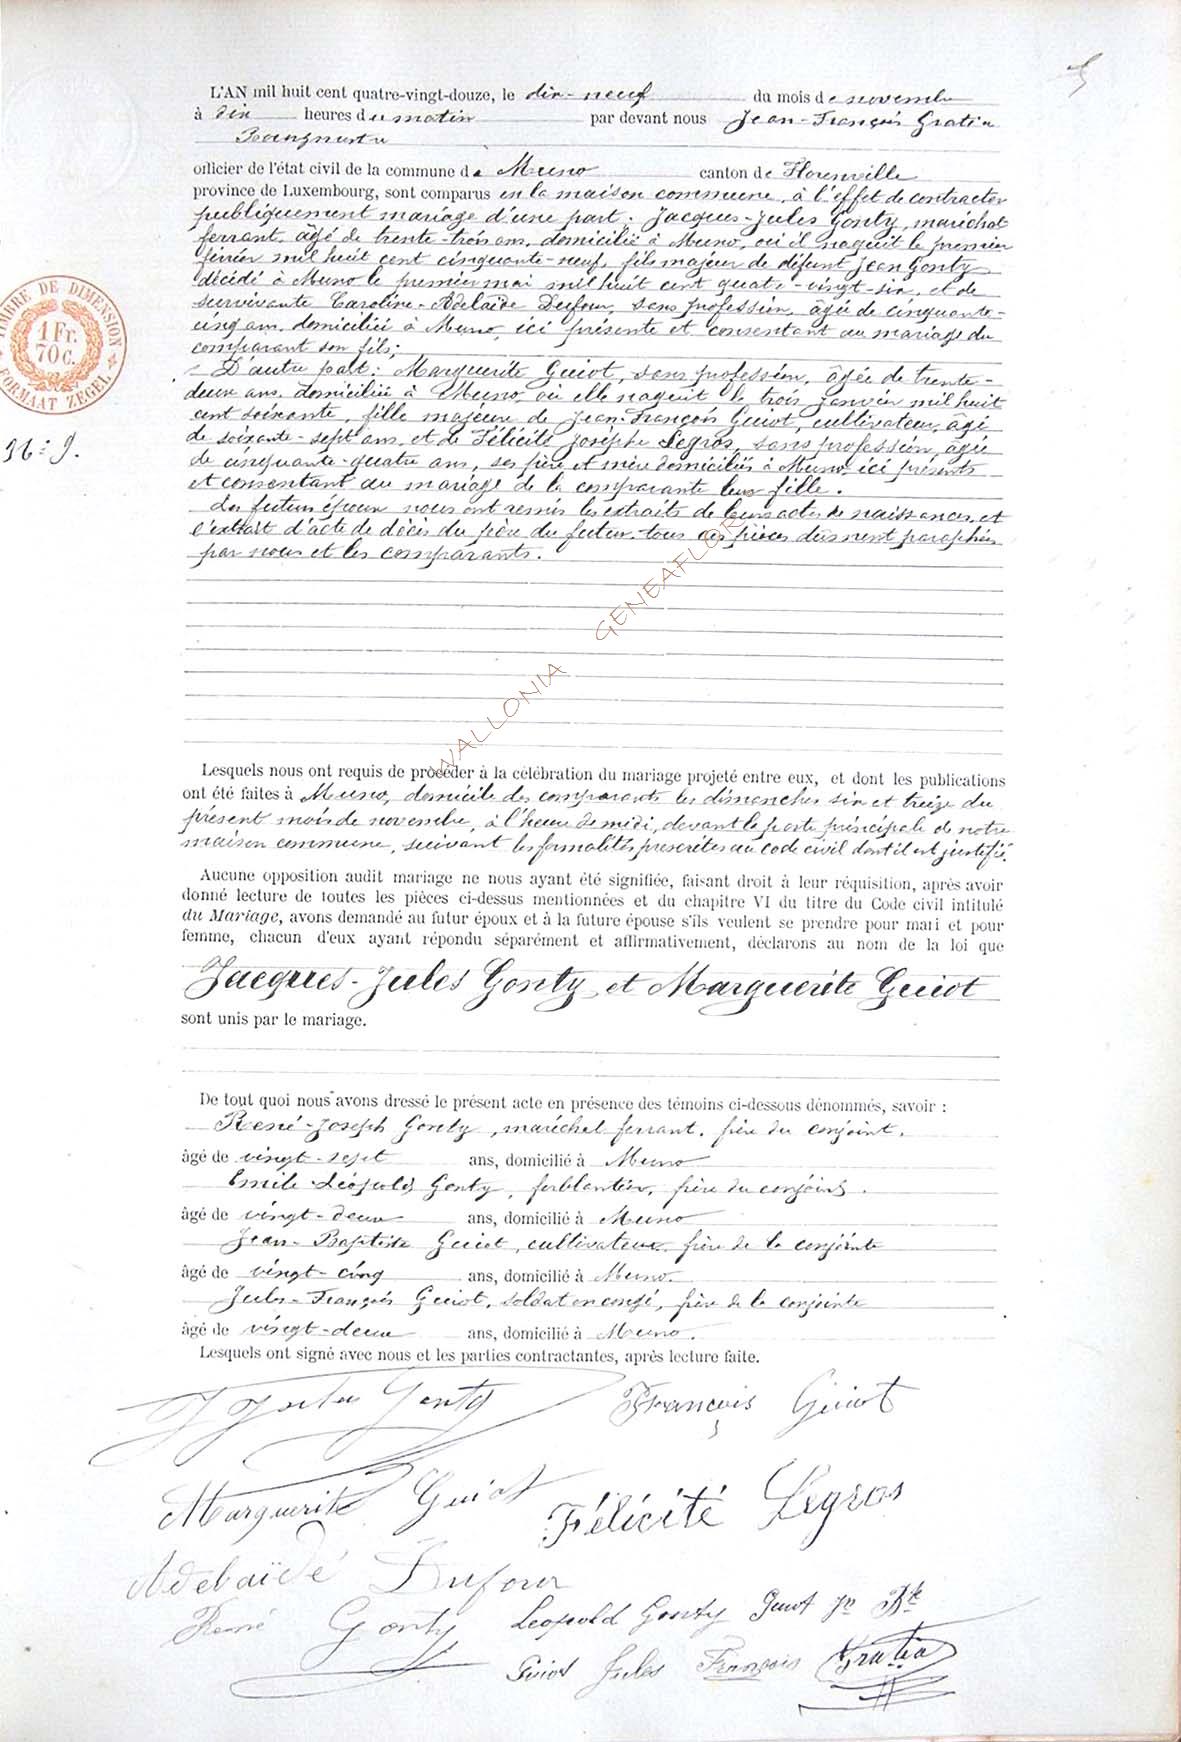 5
L'AN mil huit cent quatre-vingt-douze, le dix-neuf du mois de novembre
à dix heures du matin par devant nous Jean-François Gratia
Bourgmestre
officier de l'état civil de la commune de Muno canton de Florenville
province de Luxembourg, sont comparus en la maison commune, à l'effet de contracter
publiquement mariage d'une part. Jacques-Jules Gonty, maréchal
ferrant, âgé de trente-trois ans, domicilié à Muno, où il naquit le premier
février mil huit cent cinquante-neuf, fils majeur de défunt Jean Gonty
décédé à Muno le premier mai mil huit cent quatre-vingt-six, et de
survivante Caroline-Adelaïde Dufour, sans profession, âgée de cinquante-
cinq ans, domiciliée à Muno, ici présente et consentant au mariage du
comparant son fils;
TIMBRE DE DIMENSION
1 Fr.
70 C.
FORMAAT ZEGEL
D'autre part: Marguerite Guiot, sans profession, âgée de trente-
deux ans, domiciliée à Muno, où elle naquit le trois janvier mil huit
cent soixante, fille majeure de Jean-François Guiot, cultivateur, âgé
de soixante-sept ans, et de Félicité Josèphe Legros, sans profession, âgée
de cinquante-quatre ans, ses père et mère domiciliés à Muno, ici présents
et consentant au mariage de la comparante leur fille.
Les futurs époux nous ont remis les extraits de leurs actes de naissances, et
l'extrait d'acte de décès du père du futur, tous ces pièces dûment paraphées
par nous et les comparants.
WALLONIA GENEAFLOR
Lesquels nous ont requis de procéder à la célébration du mariage projeté entre eux, et dont les publications
ont été faites à Muno, domicile des comparants les dimanches six et treize du
présent mois de novembre, à l'heure de midi, devant la porte principale de notre
maison commune, suivant les formalités prescrites au code civil dont il est justifié.
Aucune opposition audit mariage ne nous ayant été signifiée, faisant droit à leur réquisition, après avoir
donné lecture de toutes les pièces ci-dessus mentionnées et du chapitre VI du titre du Code civil intitulé
du Mariage, avons demandé au futur époux et à la future épouse s'ils veulent se prendre pour mari et pour
femme, chacun d'eux ayant répondu séparément et affirmativement, déclarons au nom de la loi que
Jacques-Jules Gonty et Marguerite Guiot
sont unis par le mariage.
De tout quoi nous avons dressé le présent acte en présence des témoins ci-dessous dénommés, savoir :
René-Joseph Gonty, maréchal ferrant, frère du conjoint,
âgé de vingt-sept ans, domicilié à Muno
Emile-Léopold Gonty, ferblantier, frère du conjoint.
âgé de vingt-deux ans, domicilié à Muno
Jean-Baptiste Guiot, cultivateur, frère de la conjointe
âgé de vingt-cinq ans, domicilié à Muno.
Jules-François Guiot, soldat en congé, frère de la conjointe
âgé de vingt-deux ans, domicilié à Muno.
Lesquels ont signé avec nous et les parties contractantes, après lecture faite.
J Jules Gonty François Guiot
Marguerite Guiot Félicité Legros
Adelaïde Dufour
René Gonty Leopold Gonty Guiot Jn Bte
Guiot Jules François Gratia